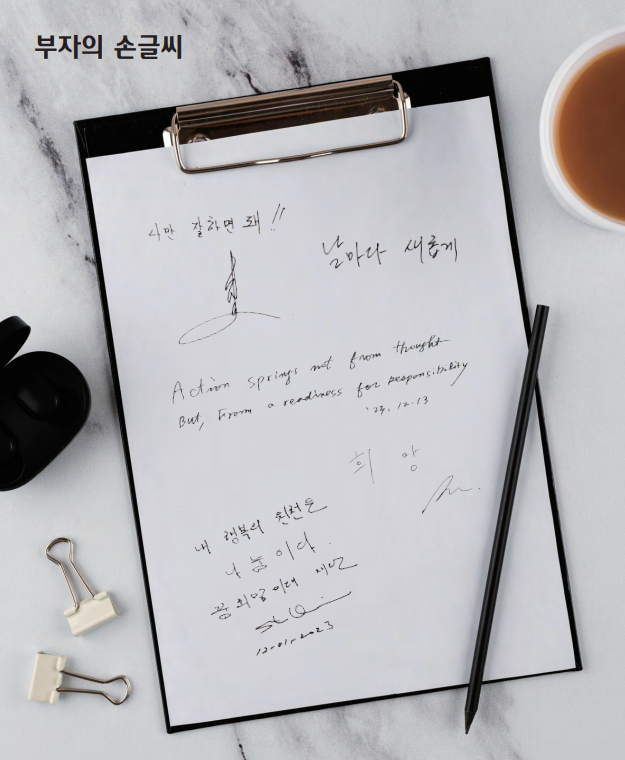 부자의 손글씨
나만 잘하면 돼!!
날마다 새롭게
Action springs not from thought
But, From a readiness for responsibility
'23. 12. 13
희망
내 행복의 원천은
나눔이다.
꿈희망이대
12-01-2023